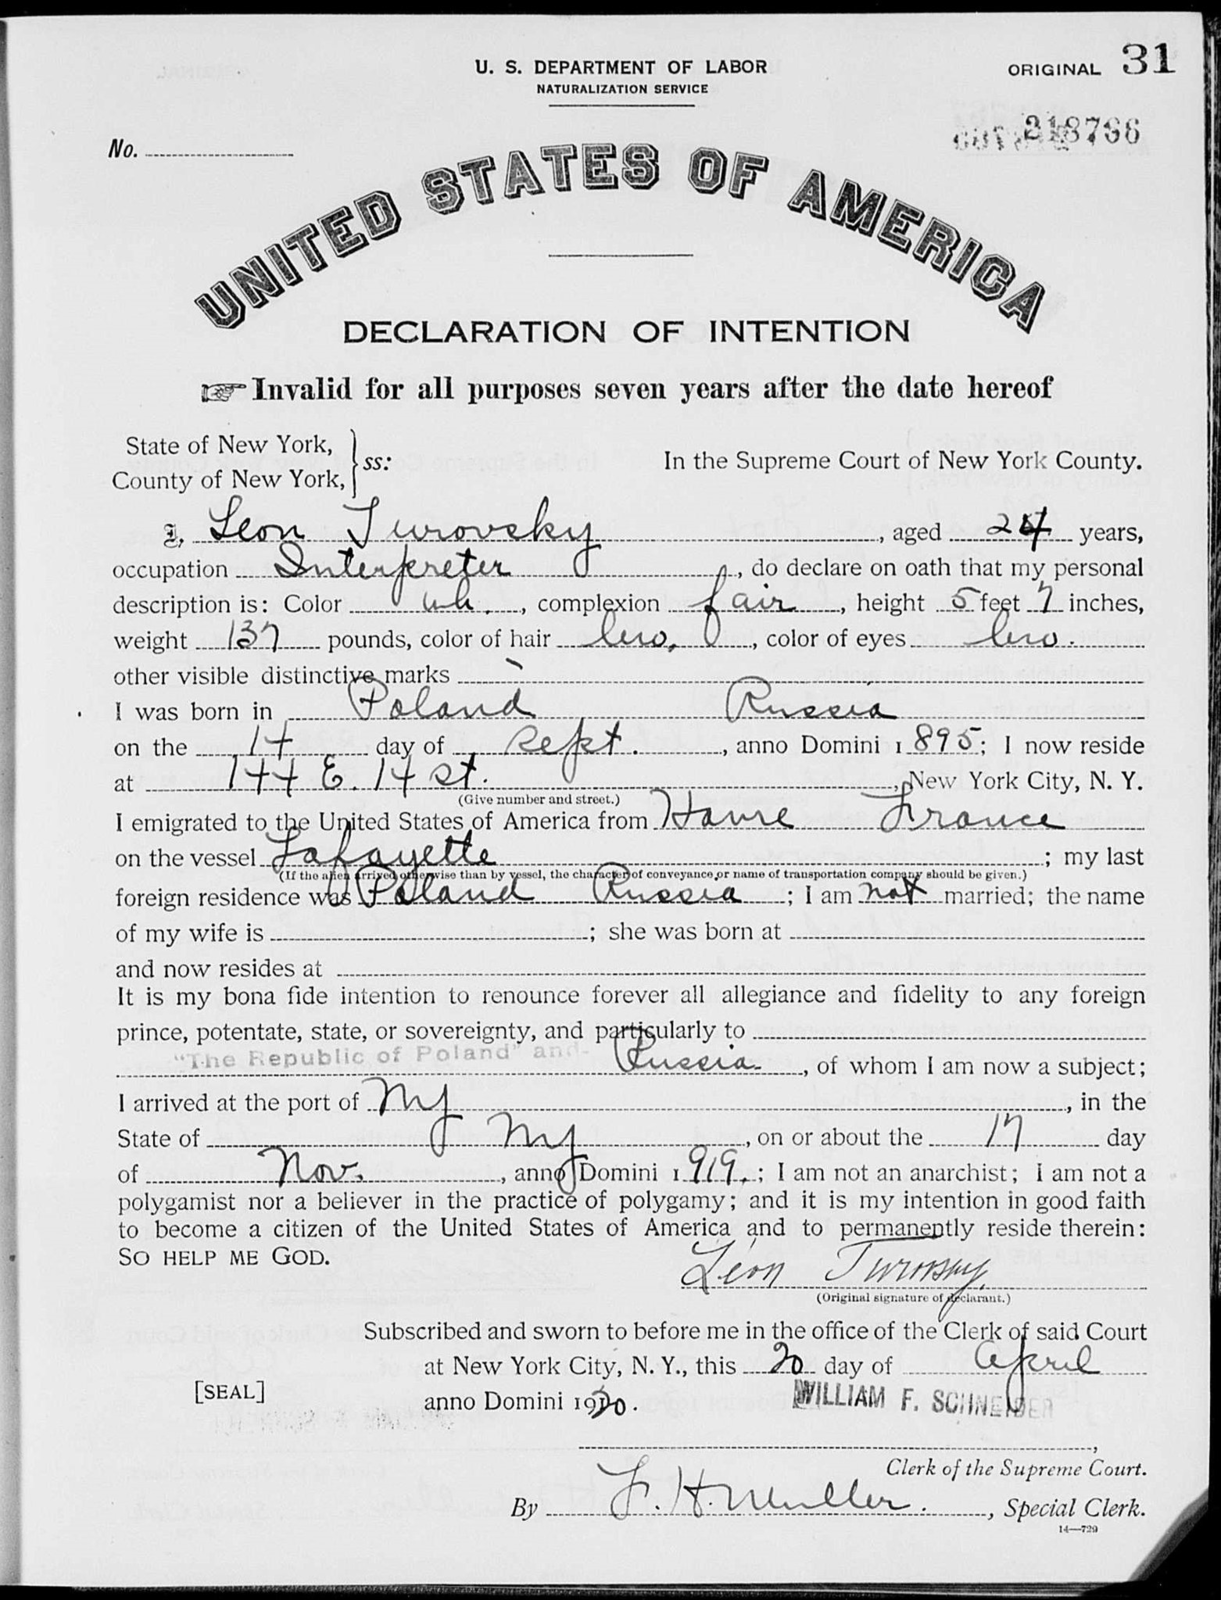 U. S. DEPARTMENT OF LABOR
NATURALIZATION SERVICE
ORIGINAL 31
No.
218766
UNITED STATES OF AMERICA
DECLARATION OF INTENTION
☞ Invalid for all purposes seven years after the date hereof
State of New York,
County of New York, ss:
In the Supreme Court of New York County.
I, Leon Turovsky, aged 24 years,
occupation Interpreter, do declare on oath that my personal
description is: Color wh., complexion fair, height 5 feet 7 inches,
weight 137 pounds, color of hair bro., color of eyes bro.
other visible distinctive marks
I was born in Poland Russia
on the 14 day of Sept., anno Domini 1895; I now reside
at 144 E. 14 St., New York City, N. Y.
(Give number and street.)
I emigrated to the United States of America from Havre France
on the vessel Lafayette; my last
(If the alien arrived otherwise than by vessel, the character of conveyance or name of transportation company should be given.)
foreign residence was Poland Russia; I am not married; the name
of my wife is ; she was born at
and now resides at
It is my bona fide intention to renounce forever all allegiance and fidelity to any foreign
prince, potentate, state, or sovereignty, and particularly to
"The Republic of Poland" and Russia, of whom I am now a subject;
I arrived at the port of NY, in the
State of NY, on or about the 17 day
of Nov., anno Domini 1919.; I am not an anarchist; I am not a
polygamist nor a believer in the practice of polygamy; and it is my intention in good faith
to become a citizen of the United States of America and to permanently reside therein:
SO HELP ME GOD.
Léon Turovsky
(Original signature of declarant.)
Subscribed and sworn to before me in the office of the Clerk of said Court
at New York City, N. Y., this 20 day of April
[SEAL]
anno Domini 1920.
WILLIAM F. SCHNEIDER,
Clerk of the Supreme Court.
By F. H. Muller., Special Clerk.
14—729